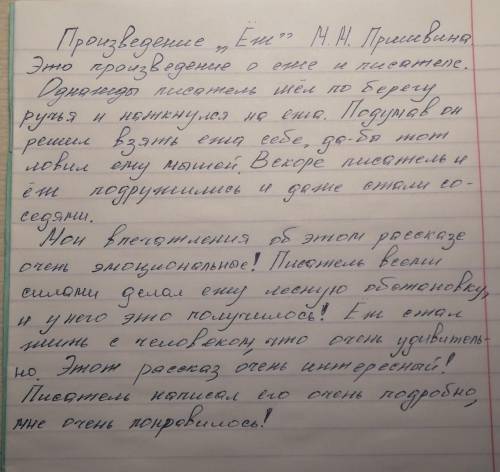 Произведение „Ёж" М.М. Пришвина
Это произведение о еже и писателе.
Однажды писатель шёл по берегу
ручья и наткнулся на ежа. Подумав он
решил взять ежа себе, да-бы тот
ловил ему мышей. Вскоре писатель и
ёж подружились и даже стали со-
седями.
Мои впечатления об этом рассказе
очень эмоциональные! Писатель всеми
силами делал ежу лесную обстановку,
и у него это получилось! Ёж стал
жить с человеком, что очень удивитель-
но. Этот рассказ очень интересный!
Писатель написал его очень подробно,
мне очень понравилось!